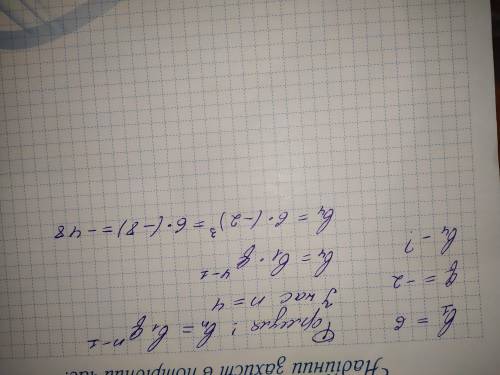 Надійний захист в потрібний час.
b₁ = 6
q = -2
b₄ - ?
Формула: bₙ = b₁qⁿ⁻¹
У нас n = 4
b₄ = b₁ · q⁴⁻¹
b₄ = 6 · (-2)³ = 6 · (-8) = -48